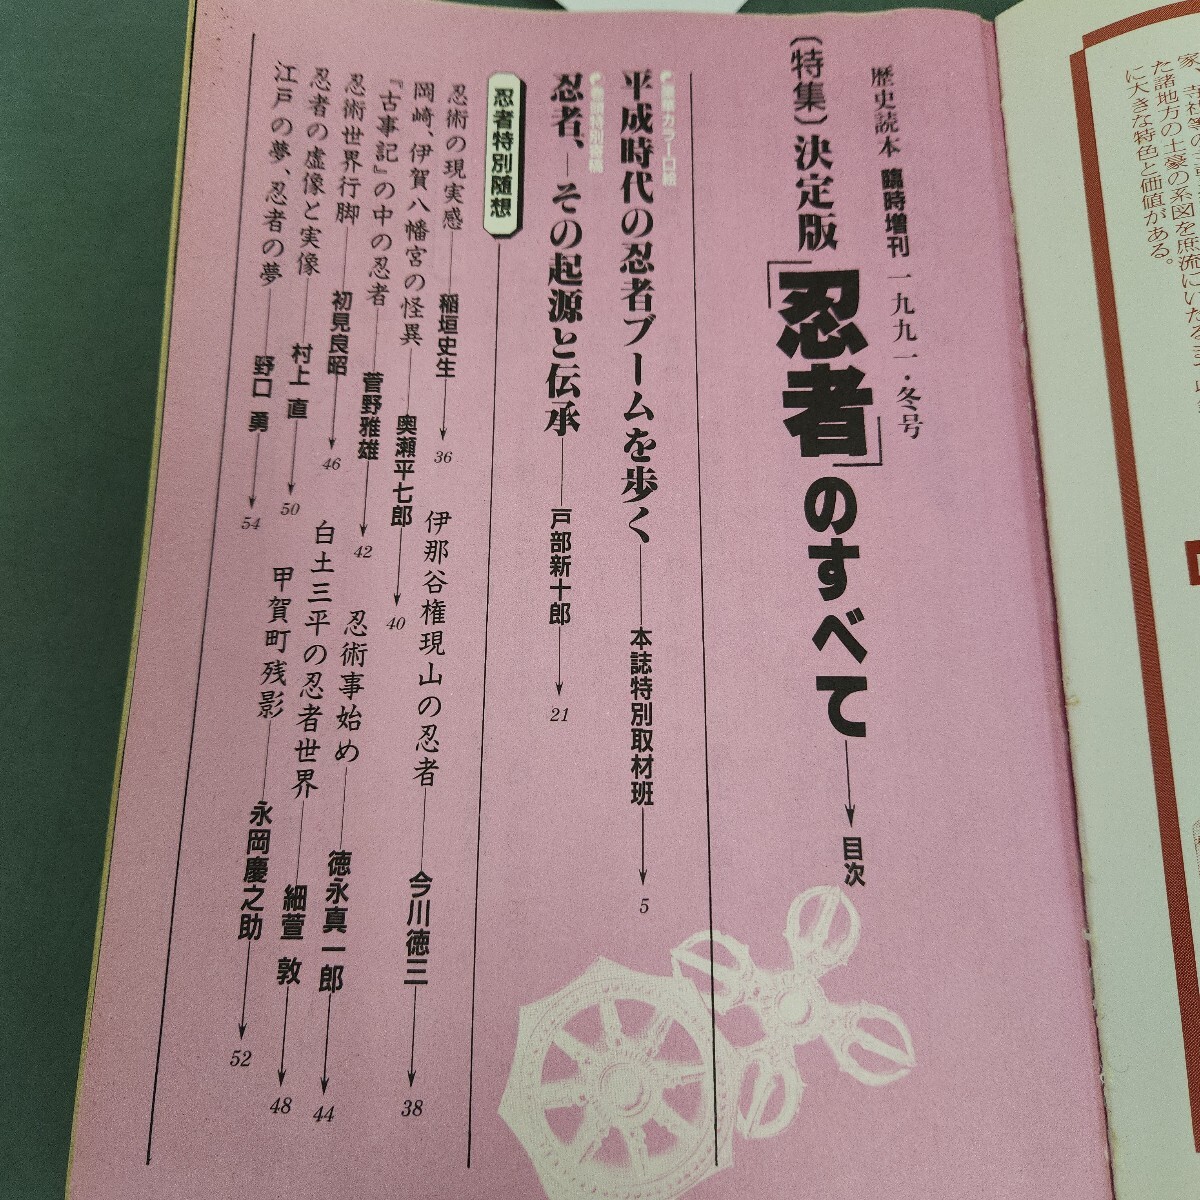 歴史読本 臨時増刊 一九九一・冬号
〔特集〕決定版「忍者」のすべて 目次
平成時代の忍者ブームを歩く 本誌特別取材班 5
巻頭特別寄稿
忍者、―その起源と伝承 戸部新十郎 21
忍者特別随想
忍術の現実感 稲垣史生 36
伊那谷権現山の忍者 今川徳三 38
岡崎、伊賀八幡宮の怪異 奥瀬平七郎 40
『古事記』の中の忍者 菅野雅雄 42
忍術事始め 徳永真一郎 44
忍術世界行脚 初見良昭 46
白土三平の忍者世界 細萱 敦 48
忍者の虚像と実像 村上 直 50
甲賀町残影 永岡慶之助 52
江戸の夢、忍者の夢 野口 勇 54
た諸地方の土豪の系図を庶流にいたる
に大きな特色と価値がある。